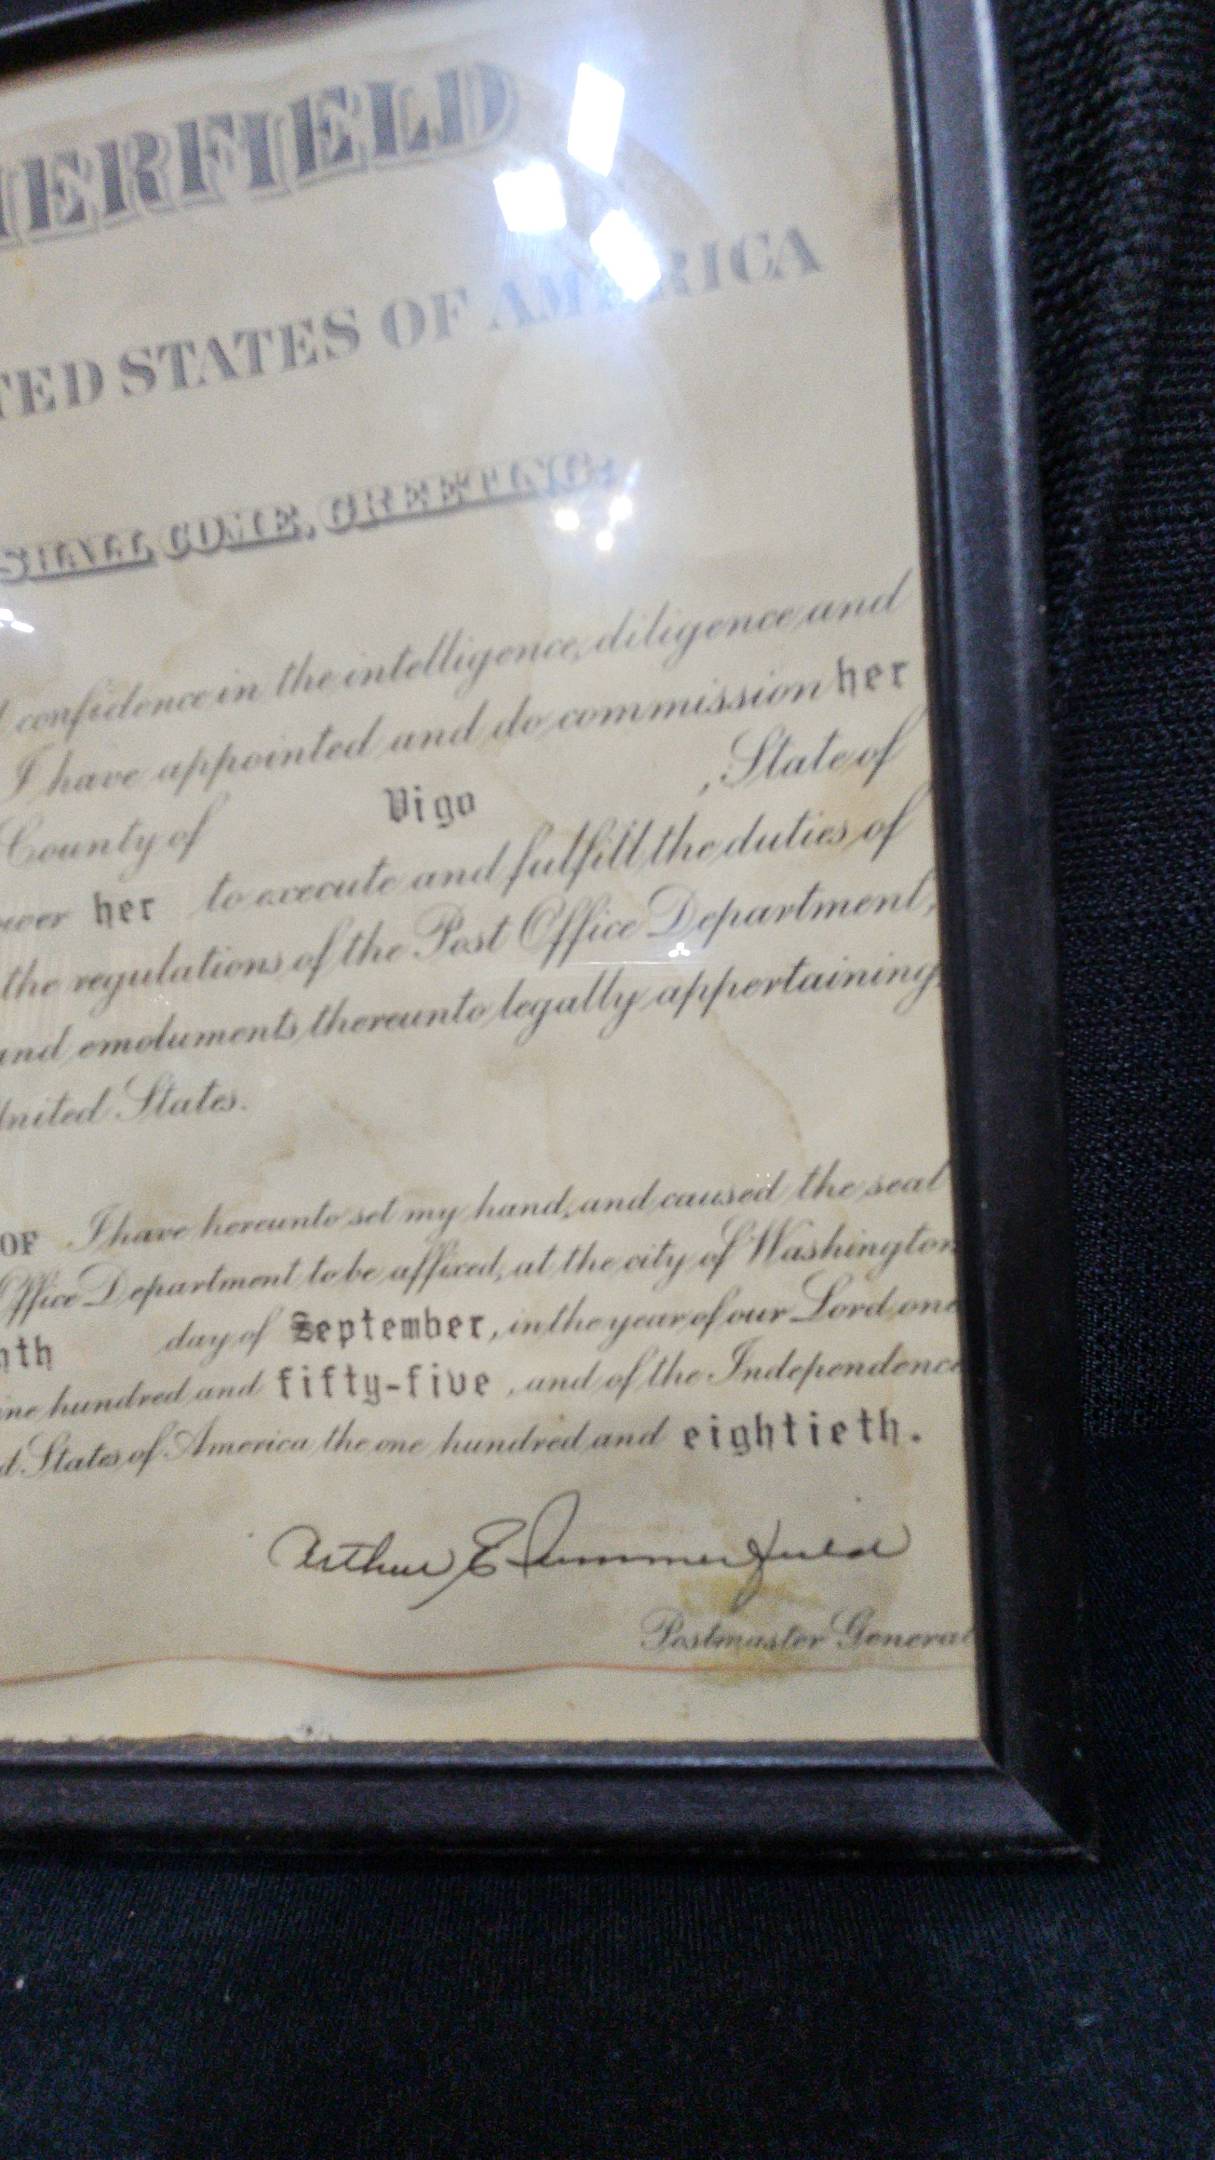 ERFIELD
TED STATES OF AMERICA
SHALL COME, GREETING:
confidence in the intelligence, diligence and
I have appointed and do commission her
County of Vigo , State of
her to execute and fulfill the duties of
the regulations of the Post Office Department,
and emoluments thereunto legally appertaining,
United States.
OF I have hereunto set my hand, and caused the seal
Office Department to be affixed, at the city of Washington
nth day of September, in the year of our Lord one
ine hundred and fifty-five , and of the Independence
d States of America the one hundred and eightieth.
Arthur E Summerfield
Postmaster General